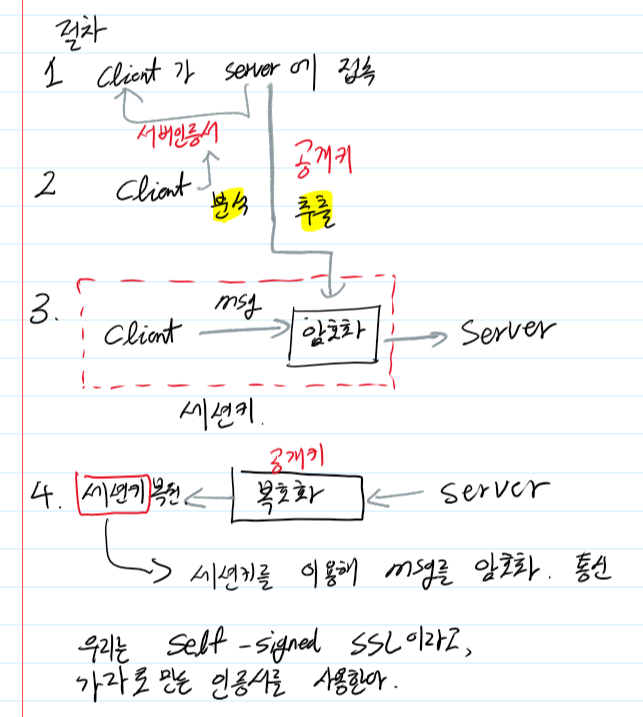 절차
1 Client 가 server 에 접속
서버인증서
공개키
2 Client 분석 추출
3. Client msg 암호화 Server
세션키.
공개키
4. 세션키 복원 복호화 Server
세션키를 이용해 msg를 암호화. 통신
우리는 self-signed SSL이라고,
가라로 만든 인증서를 사용한다.